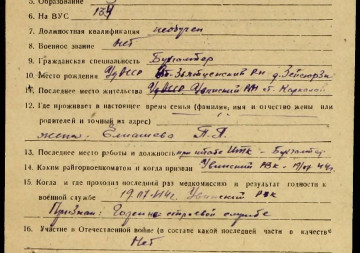 5. Образование 3
6. На ВУС 134
7. Должностная квалификация необучен
6. Военное звание Нет
9. Гражданская специальность Бухгалтер
10. Место рождения УдАССР р-н д.
11. Последнее место жительства УдАССР Увинский р-н
12. Где проживает в настоящее время семья (фамилия, имя и отчество жены или
родителей и точный их адрес)
жена: Елашева
13. Последнее место работы и должность при штабе ИТК - Бухгалтер
14. Каким райгорвоенкоматом и когда призван Увинский РВК - 19/07 44г.
15. Когда и где проходил последний раз медкомиссию и результат годности к
военной службе 19.07.44г. Увинский РВК
Признан: Годен к строевой службе
16. Участие в Отечественной войне (в составе какой последней части в качестве
Нет